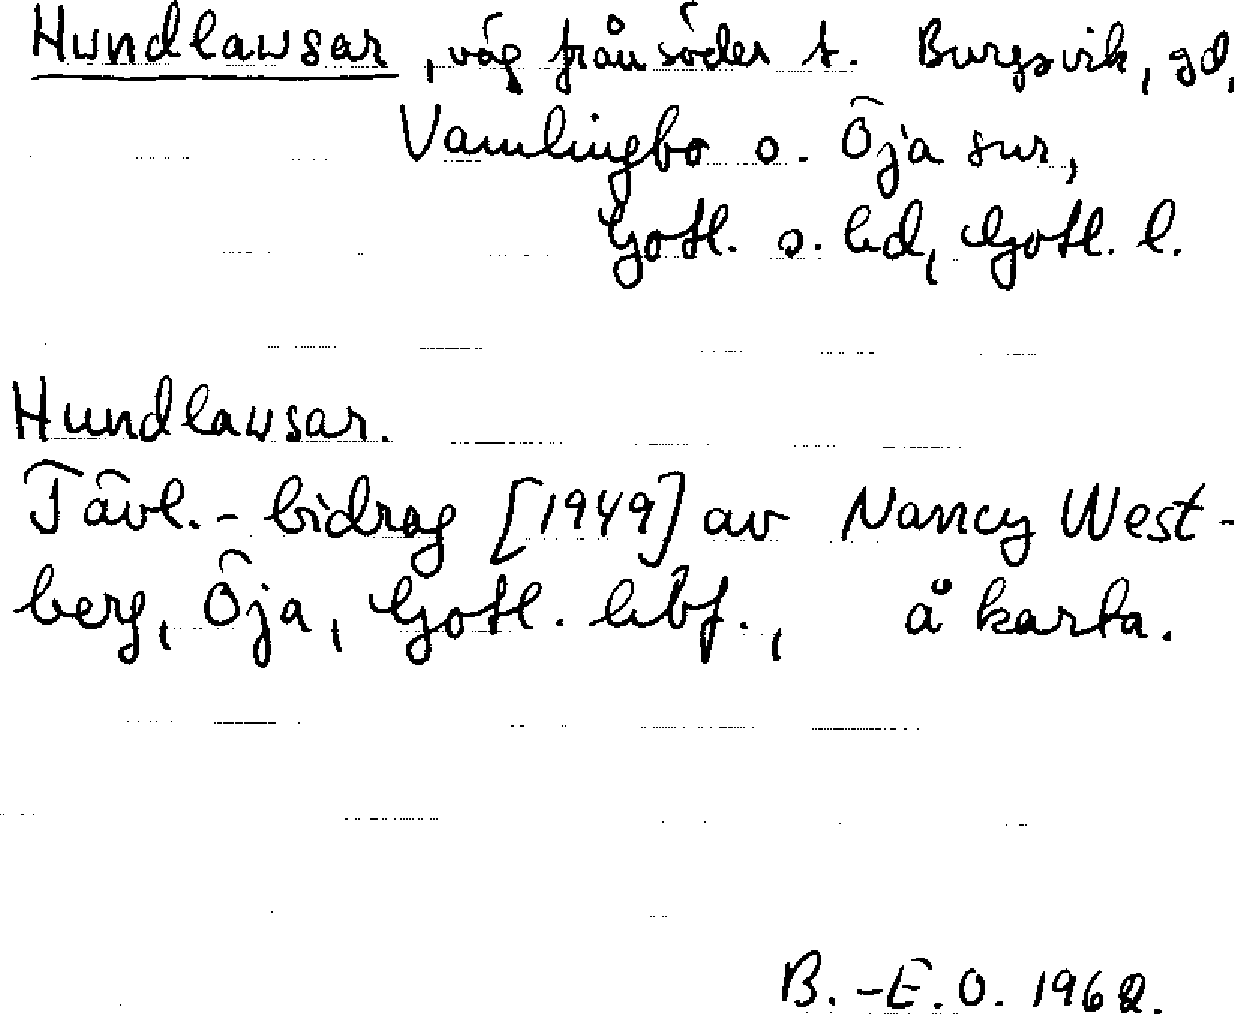 Hundlausar, väg från söder t. Burgsvik, gd,
Vamlingbo o. Öja snr,
Gotl. s. hd, Gotl. l.
Hundlausar.
Tävl.-bidrag [1949] av Nancy West-
berg, Öja, Gotl. hbf., å karta.
B.-E.O. 1962.